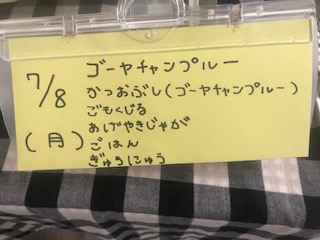 7/8
(月)
ゴーヤチャンプルー
かつおぶし(ゴーヤチャンプルー)
ごもくじる
あげやきじゃが
ごはん
ぎゅうにゅう